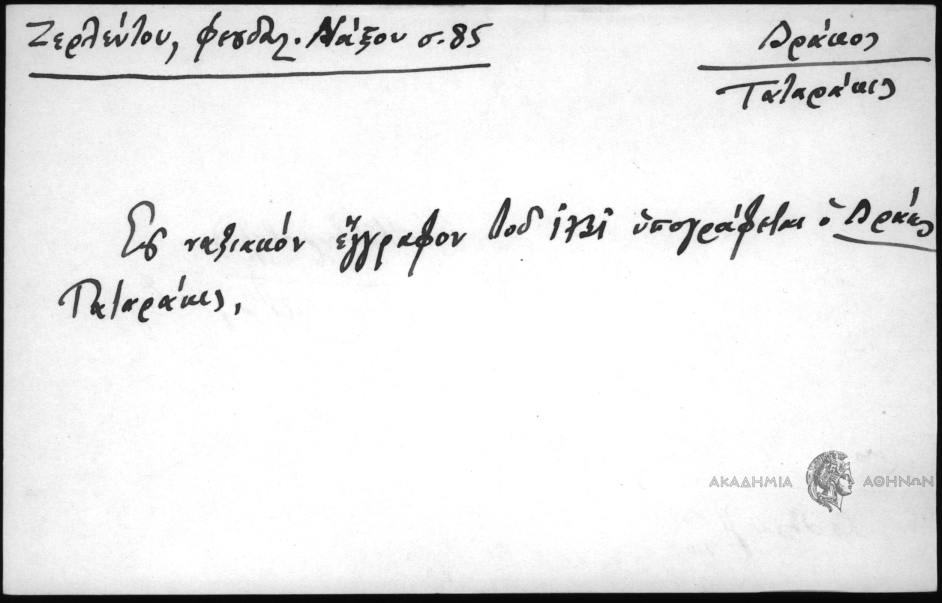 Ζερλέντου, φεουδαλ. Νάξου σ. 85
Δράκος
Παταράκις
Εἰς ναξιακόν ἔγγραφον τοῦ 1731 ὑπογράφεται ὁ Δράκος
Παταράκις.
ΑΚΑΔΗΜΙΑ ΑΘΗΝΩΝ